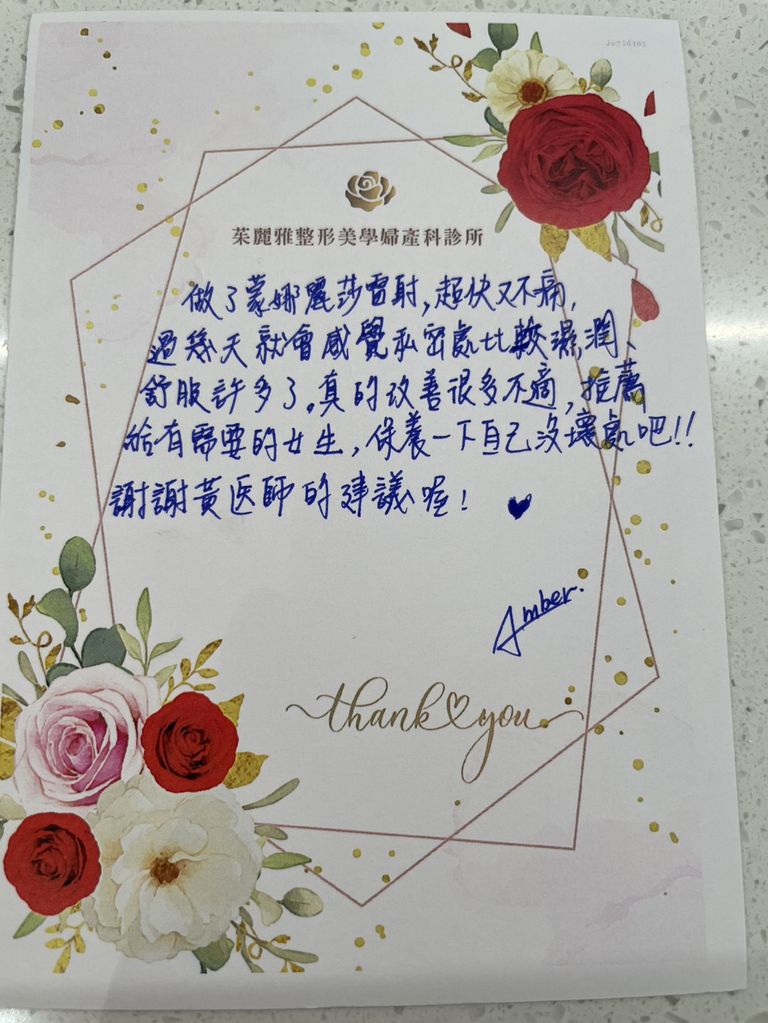 茱麗雅整形美學婦產科診所
做了蒙娜麗莎雷射,超快又不痛,
過幾天就會感覺私密處比較濕潤、
舒服許多了。真的改善很多不適,推薦
給有需要的女生,保養一下自己沒壞處吧!!
謝謝黃医師的建議喔! ♥
Amber.
thank you